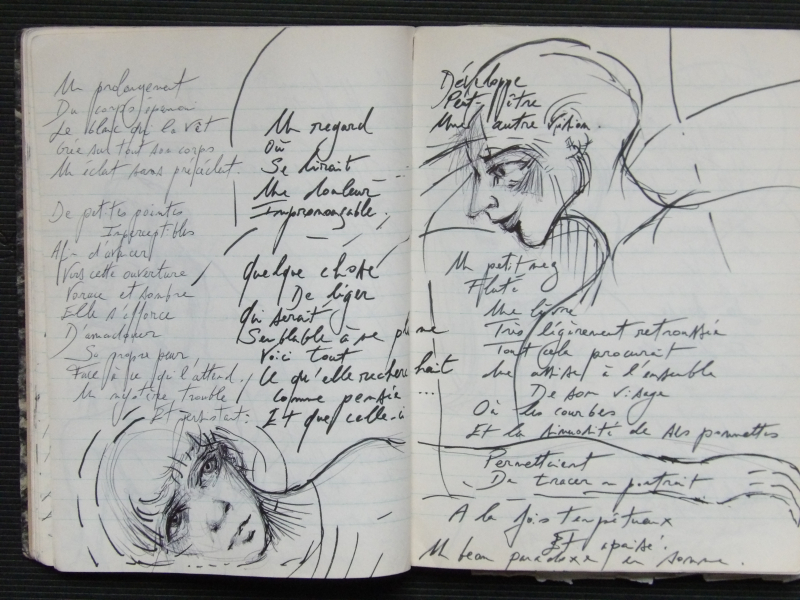 Un prolongement
Du corps épanoui
Le blanc qui la vêt
Crée sur tout son corps
Un éclat sans précédent.
De petites pointes
Imperceptibles
Afin d'avancer
Vers cette ouverture
Vorace et sombre
Elle s'efforce
D'amadouer
Sa propre peur
Face à ce qui l'attend.
Un mystère trouble
Et persistant.
Un regard
Où
Se lirait
Une douleur
Imprononçable.
Quelque chose
De léger
Qui serait
Semblable à sa plume
Voici tout
Ce qu'elle recherchait
Comme pensée
Et que celle-ci
Développe
Peut-être
Une autre vision.
Un petit nez
Flûté
Une lèvre
Très légèrement retroussée
Tout cela procurait
Une assise à l'ensemble
De son visage
Où les courbes
Et la sinuosité de ses pommettes
Permettaient
De tracer un portrait
A la fois tempétueux
Et apaisé.
Un beau paradoxe en somme.